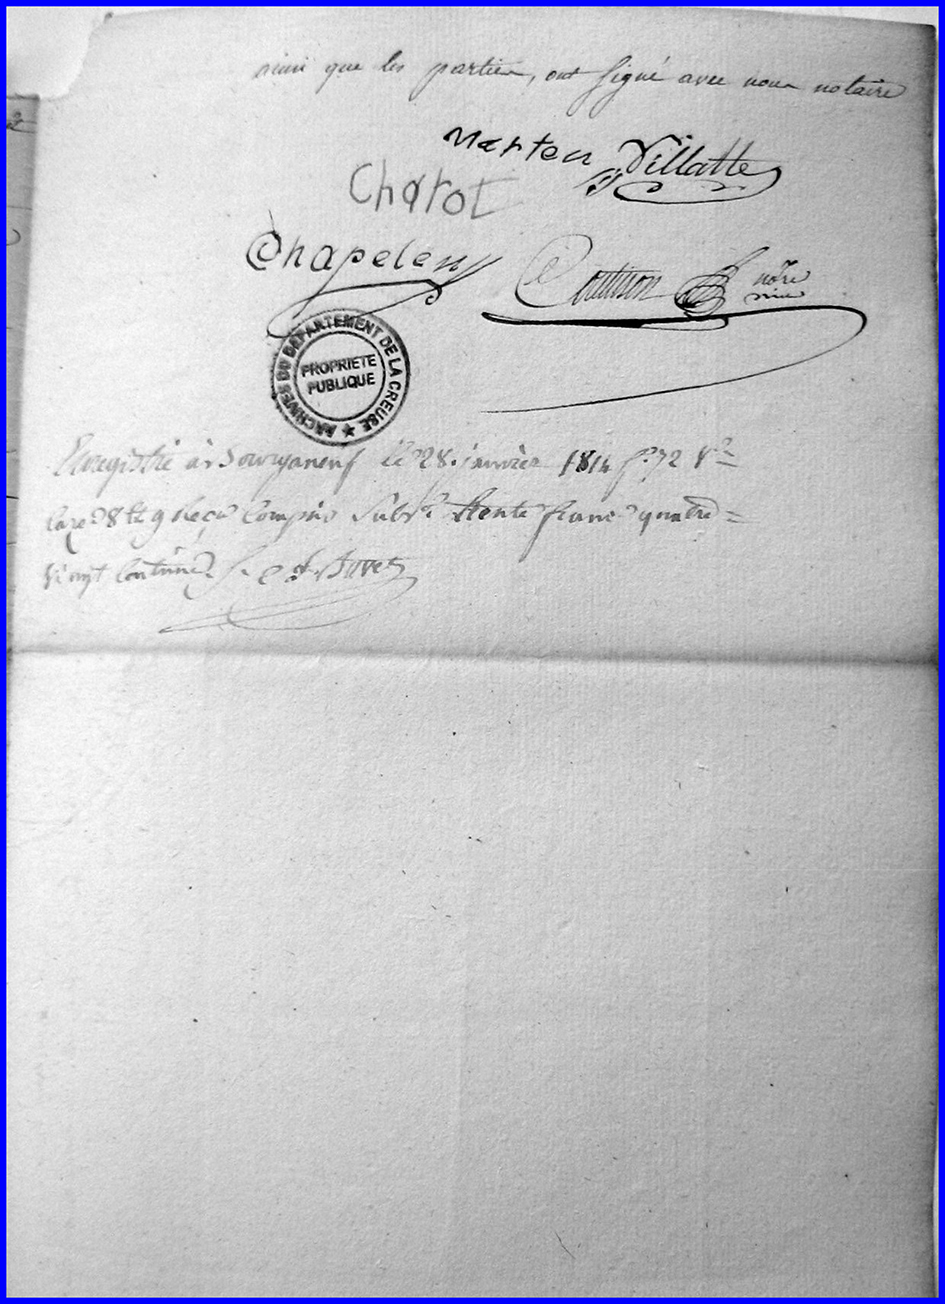 ainsi que les parties, ont signé avec nous notaire
Marten Villatte
Charot
Chapelen
Coutisson notre
ARCHIVES DU DÉPARTEMENT DE LA CREUSE
PROPRIÉTÉ
PUBLIQUE
Enregistré à Bourganeuf le 28 janvier 1814 f° 72 V°
case 8 et 9 Reçu compris Subv. trente francs quatre
vingt centimes